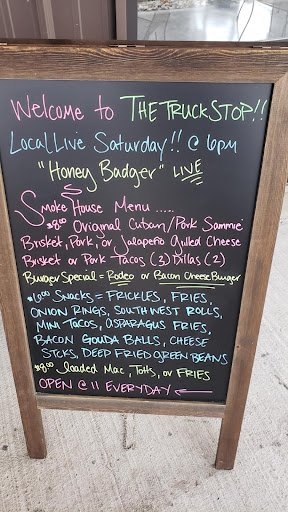 Welcome to THE TRUCK STOP!!
Local Live Saturday!! @ 6pm
"Honey Badger" LIVE
Smoke House Menu .....
$8.00 Original Cuban/Pork Sammie
Brisket, Pork, or Jalapeño Grilled Cheese
Brisket or Pork Tacos (3) Dillas (2)
Burger Special = Rodeo or Bacon Cheese Burger
$6.00 Snacks = FRICKLES, FRIES,
ONION RINGS, SOUTHWEST ROLLS,
MINI TACOS, ASPARAGUS FRIES,
BACON GOUDA BALLS, CHEESE
STCKS, DEEP FRIED GREEN BEANS
$8.00 loaded Mac, Totts, or FRIES
OPEN @ 11 EVERYDAY